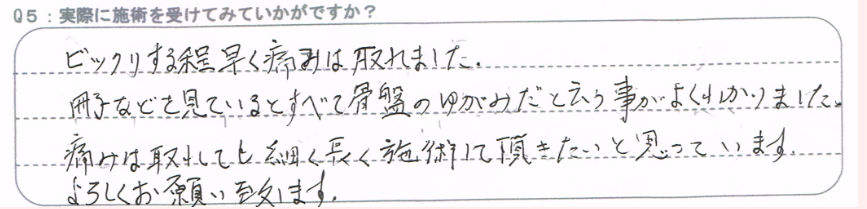 Q5：実際に施術を受けてみていかがですか？
ビックリする程早く痛みは取れました.
冊子などを見ているとすべて骨盤のゆがみだと云う事がよくわかりました。
痛みは取れしても細く長く施術して頂きたいと思っています.
よろしくお願い致します.